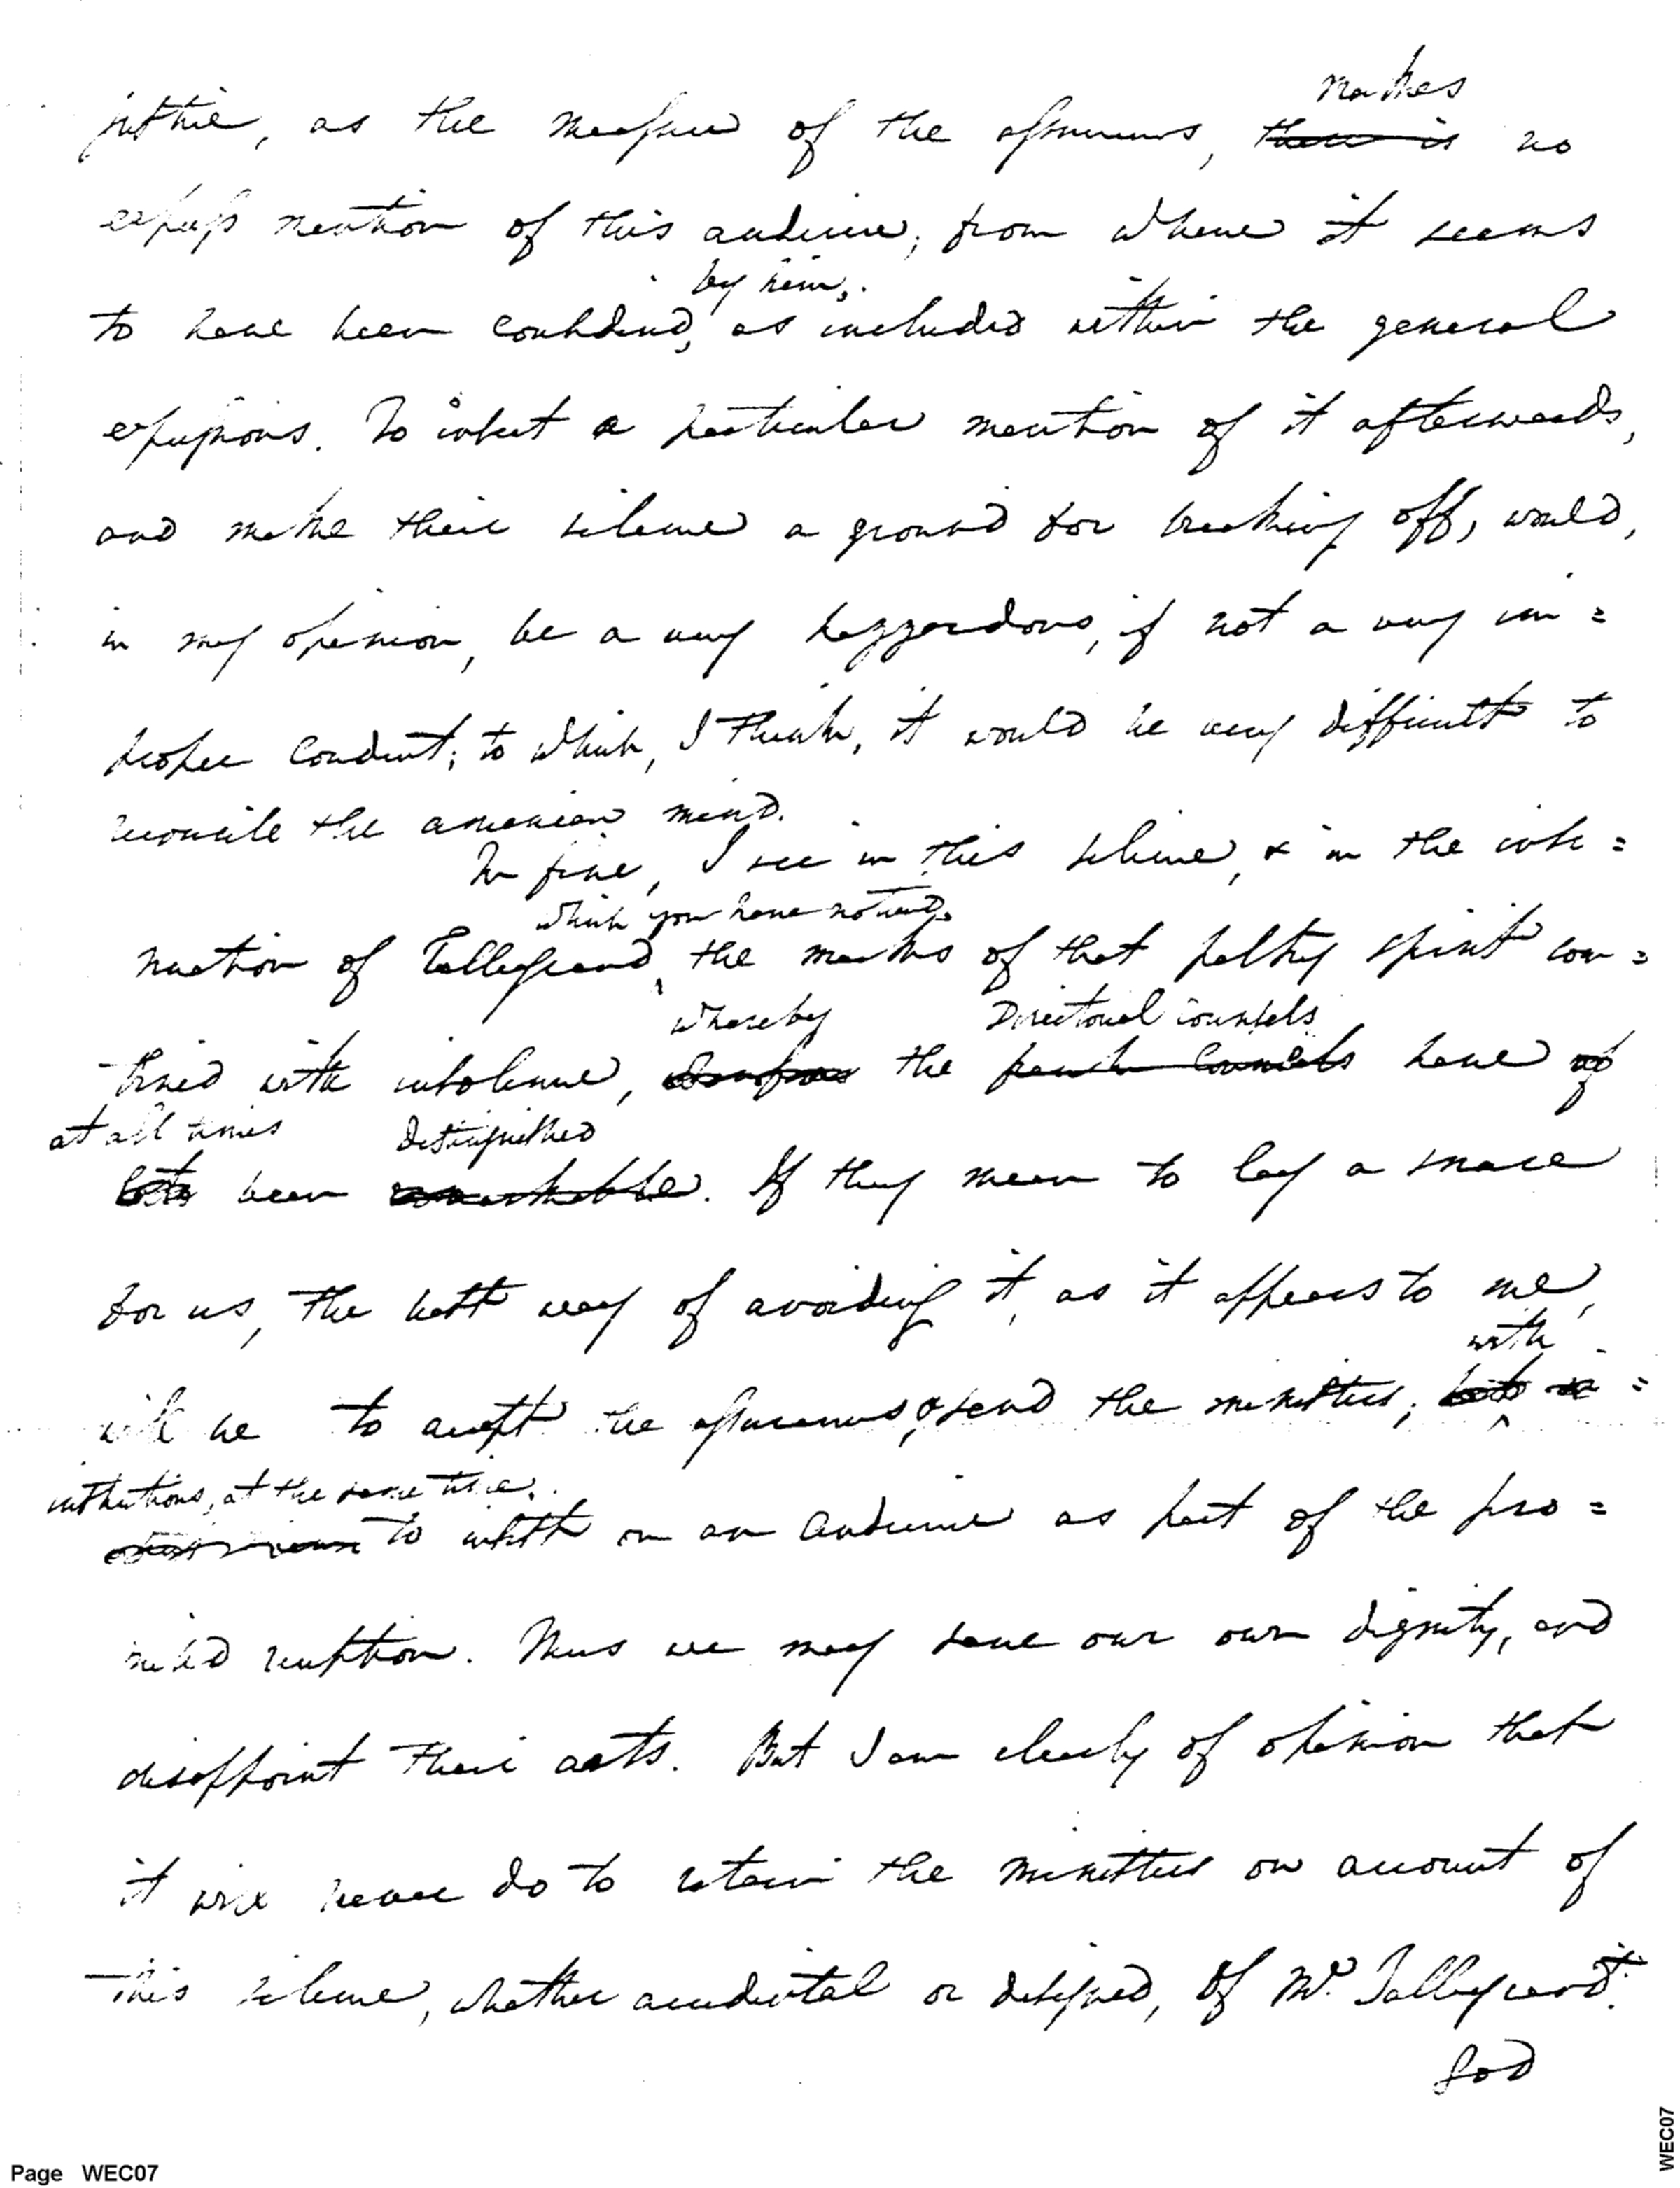 makes
justice, as the measure of the assurances, there is no
express mention of this audience; from whence it seems
by him,
to have been considered, as included within the general
expressions. To insist a particular mention of it afterwards,
and make their silence a ground for breaking off, would,
in my opinion, be a very hazzardous, if not a very im=
proper conduct; to which, I think, it would be very difficult to
reconcile the american mind.
In fine, I see in this silence, & in the insi=
which you have noticed,
nuation of Talleyrand, the marks of that paltry spirit com=
whereby Directorial counsels
bined with insolence, the french councils have of
at all times distinguished
late been remarkable. If they mean to lay a snare
for us, the best way of avoiding it, as it appears to me,
with
will be to accept the assurances, & send the ministers; but
instructions, at the same time,
to insist on an audience as part of the pro=
mised reception. Thus we may save our own dignity, and
disappoint their arts. But I am clearly of opinion that
it will never do to retain the ministers on account of
this silence, whether accidental or designed, of Mr. Talleyrand.
God
Page WEC07
WEC07